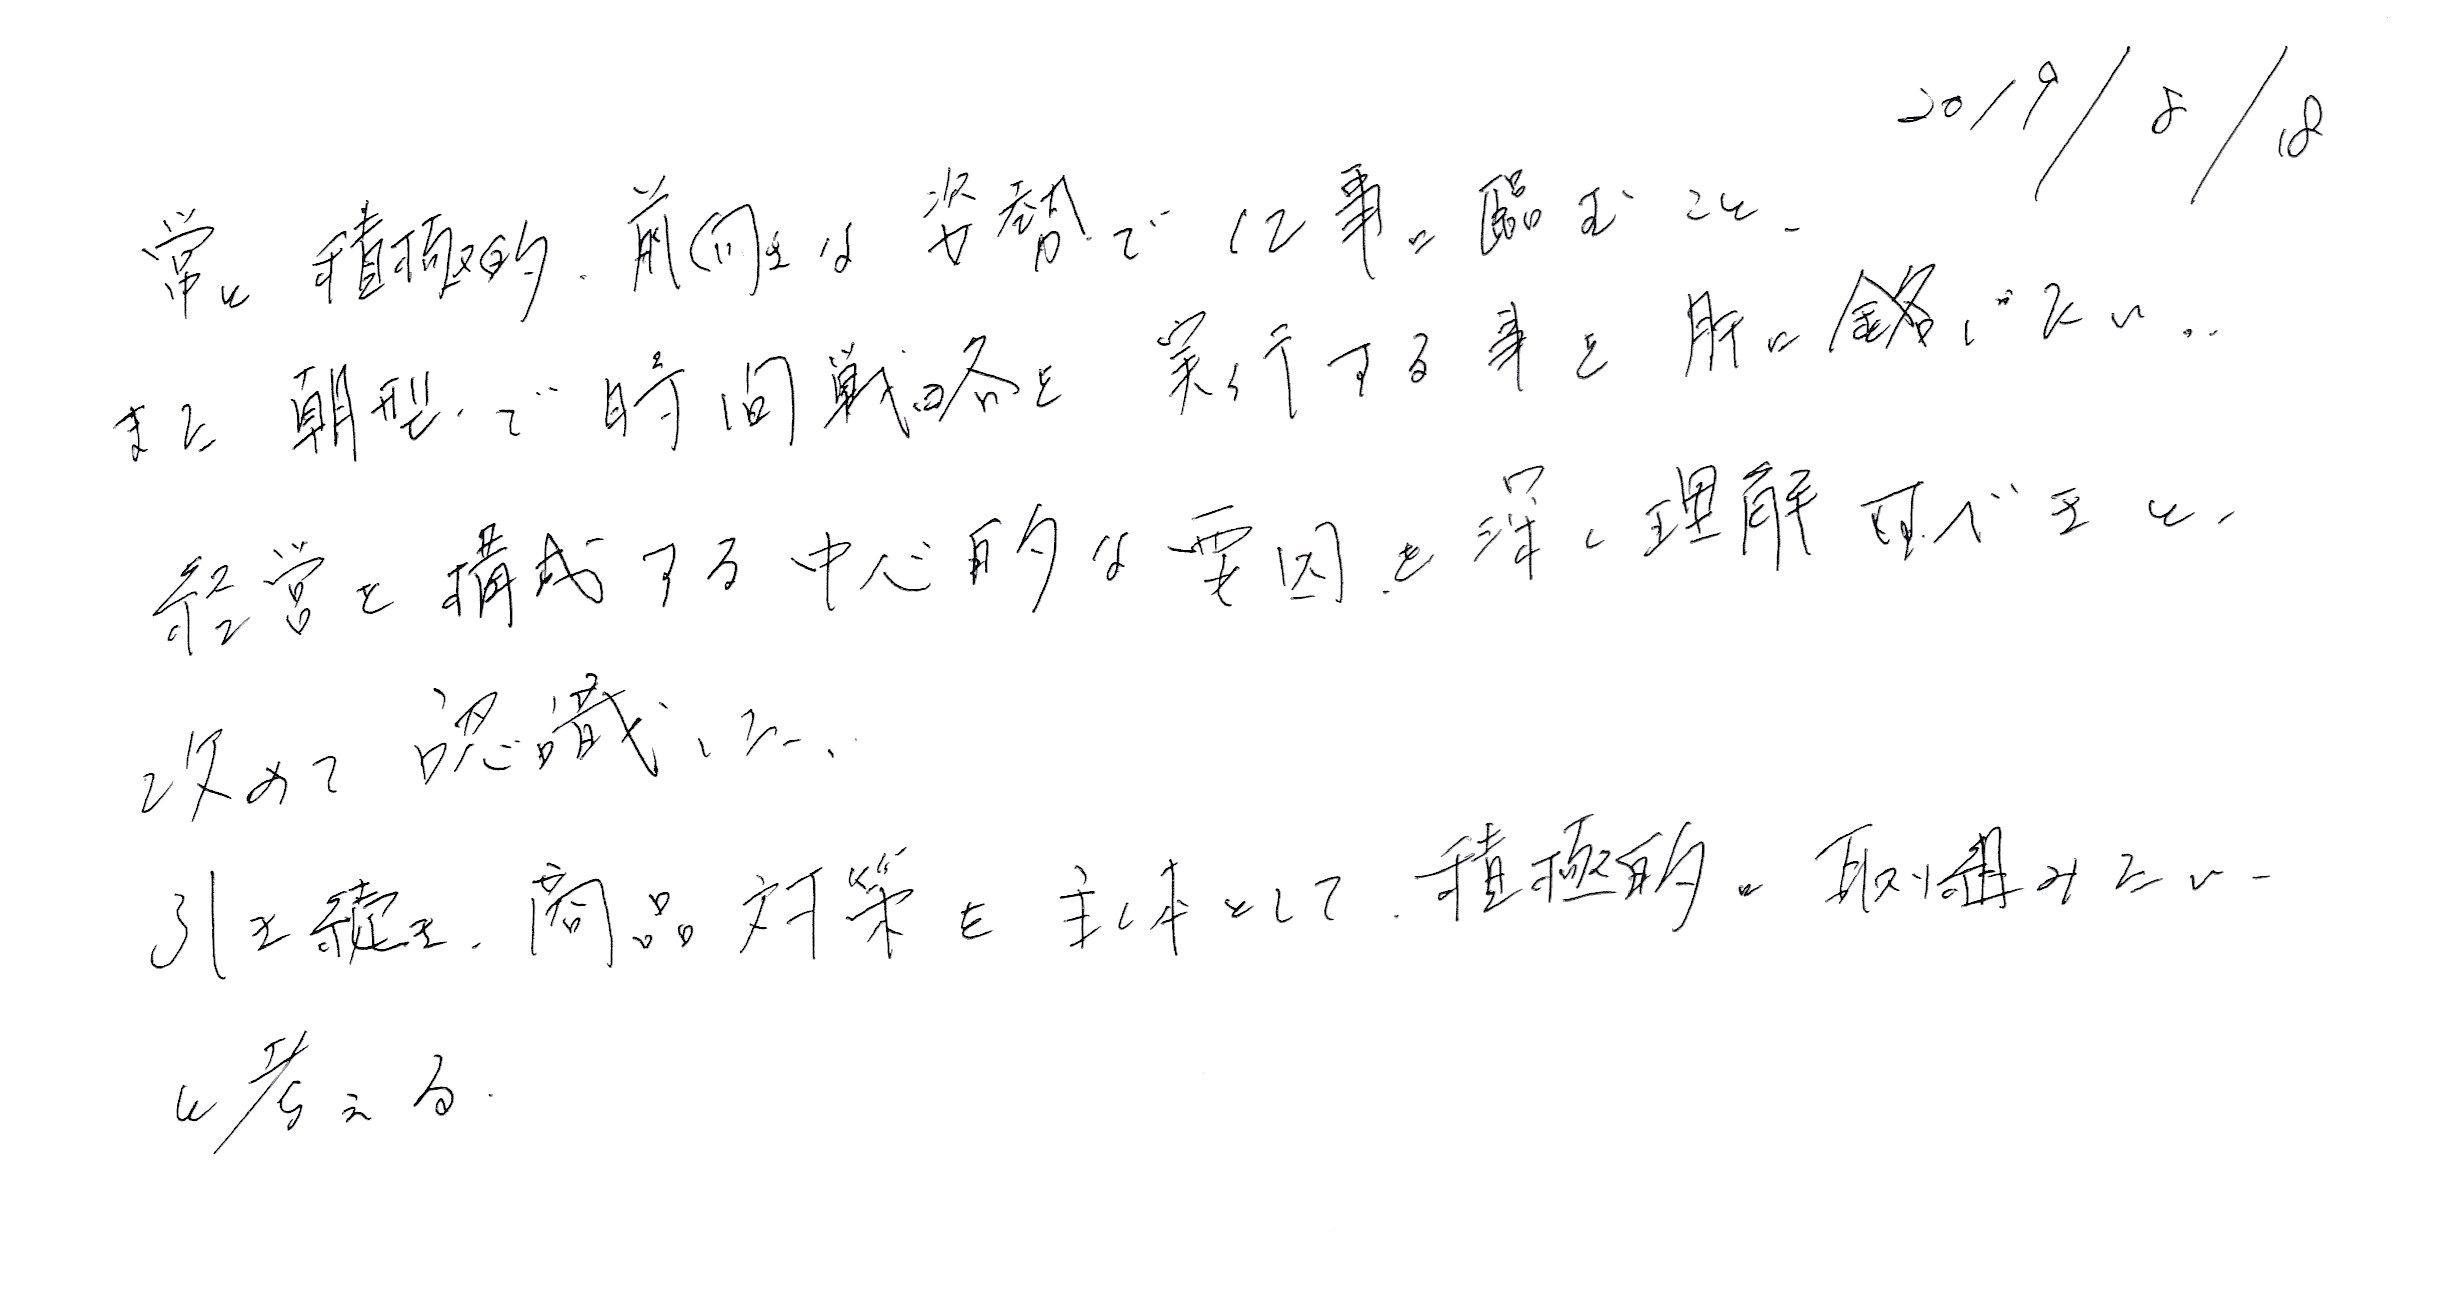 2019/8/18
常に積極的、前向きな姿勢で仕事に臨むこと、
また朝型で時間戦略を実行する事を肝に銘じたい。
経営を構成する中心的な要因を深く理解すべきと、
改めて認識した。
引き続き、商品対策を主体として、積極的に取り組みたい
と考える。